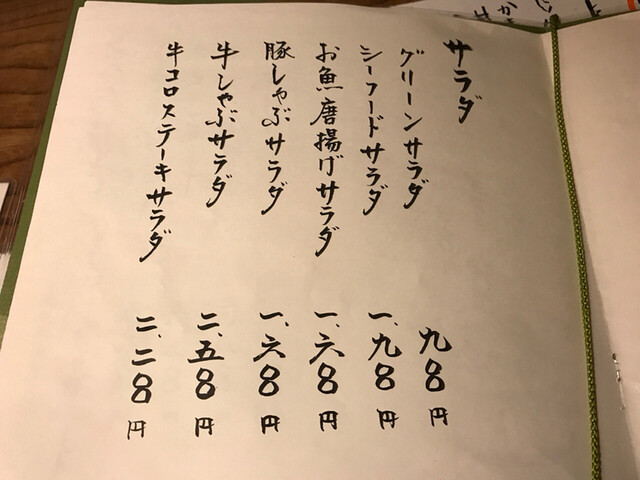 サラダ
グリーンサラダ 九〇〇円
シーフードサラダ 一、九〇〇円
お魚唐揚げサラダ 一、六〇〇円
豚しゃぶサラダ 一、六〇〇円
牛しゃぶサラダ 二、五〇〇円
牛コロステーキサラダ 二、二〇〇円